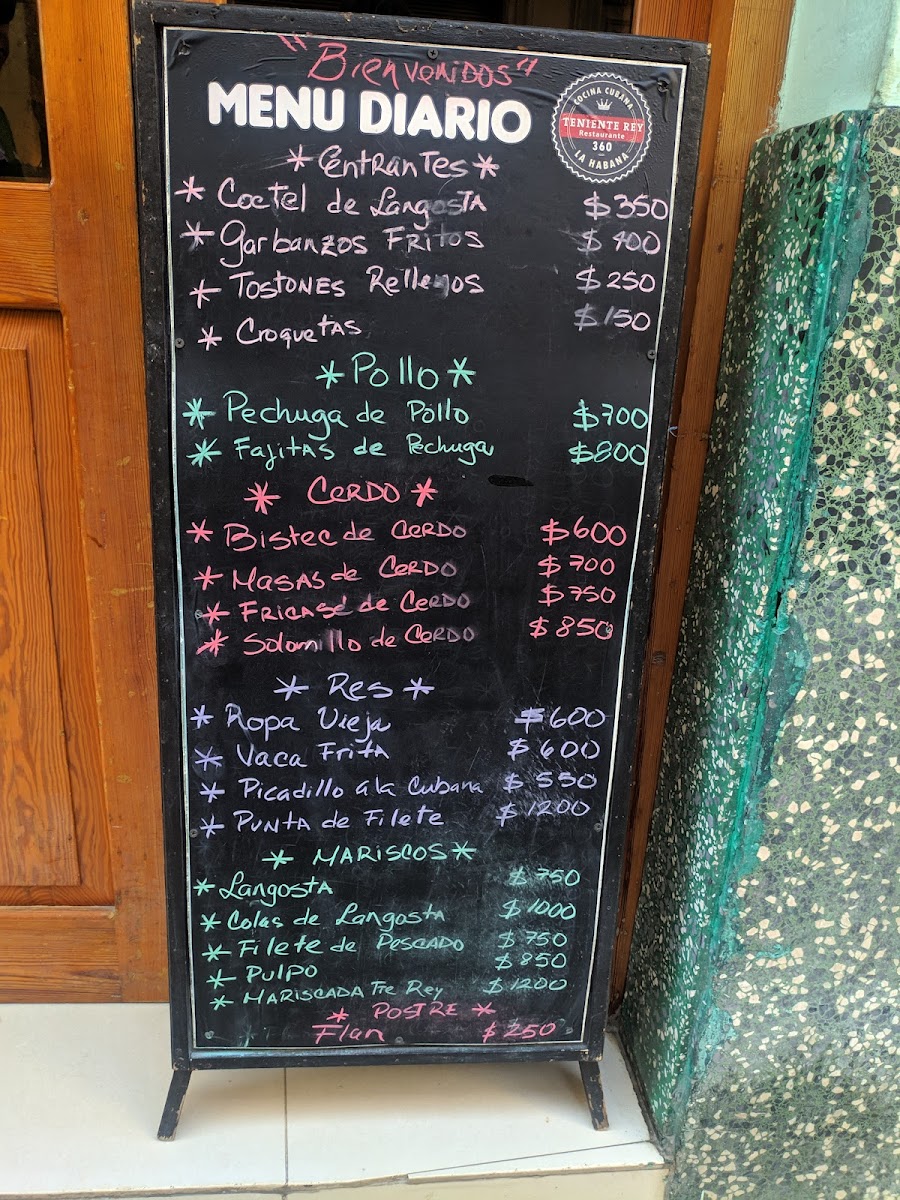 "Bienvenidos"
MENU DIARIO
COCINA CUBANA
TENIENTE REY
Restaurante
360
LA HABANA
* Entrantes *
* Coctel de Langosta $350
* Garbanzos Fritos $400
* Tostones Rellenos $250
* Croquetas $150
* Pollo *
* Pechuga de Pollo $700
* Fajitas de Pechuga $800
* Cerdo *
* Bistec de Cerdo $600
* Masas de Cerdo $700
* Fricasé de Cerdo $750
* Solomillo de Cerdo $850
* Res *
* Ropa Vieja $600
* Vaca Frita $600
* Picadillo a la Cubana $550
* Punta de Filete $1200
* MARISCOS *
* Langosta $750
* Colas de Langosta $1000
* Filete de Pescado $750
* Pulpo $850
* MARISCADA Tte Rey $1200
* POSTRE *
Flan $250